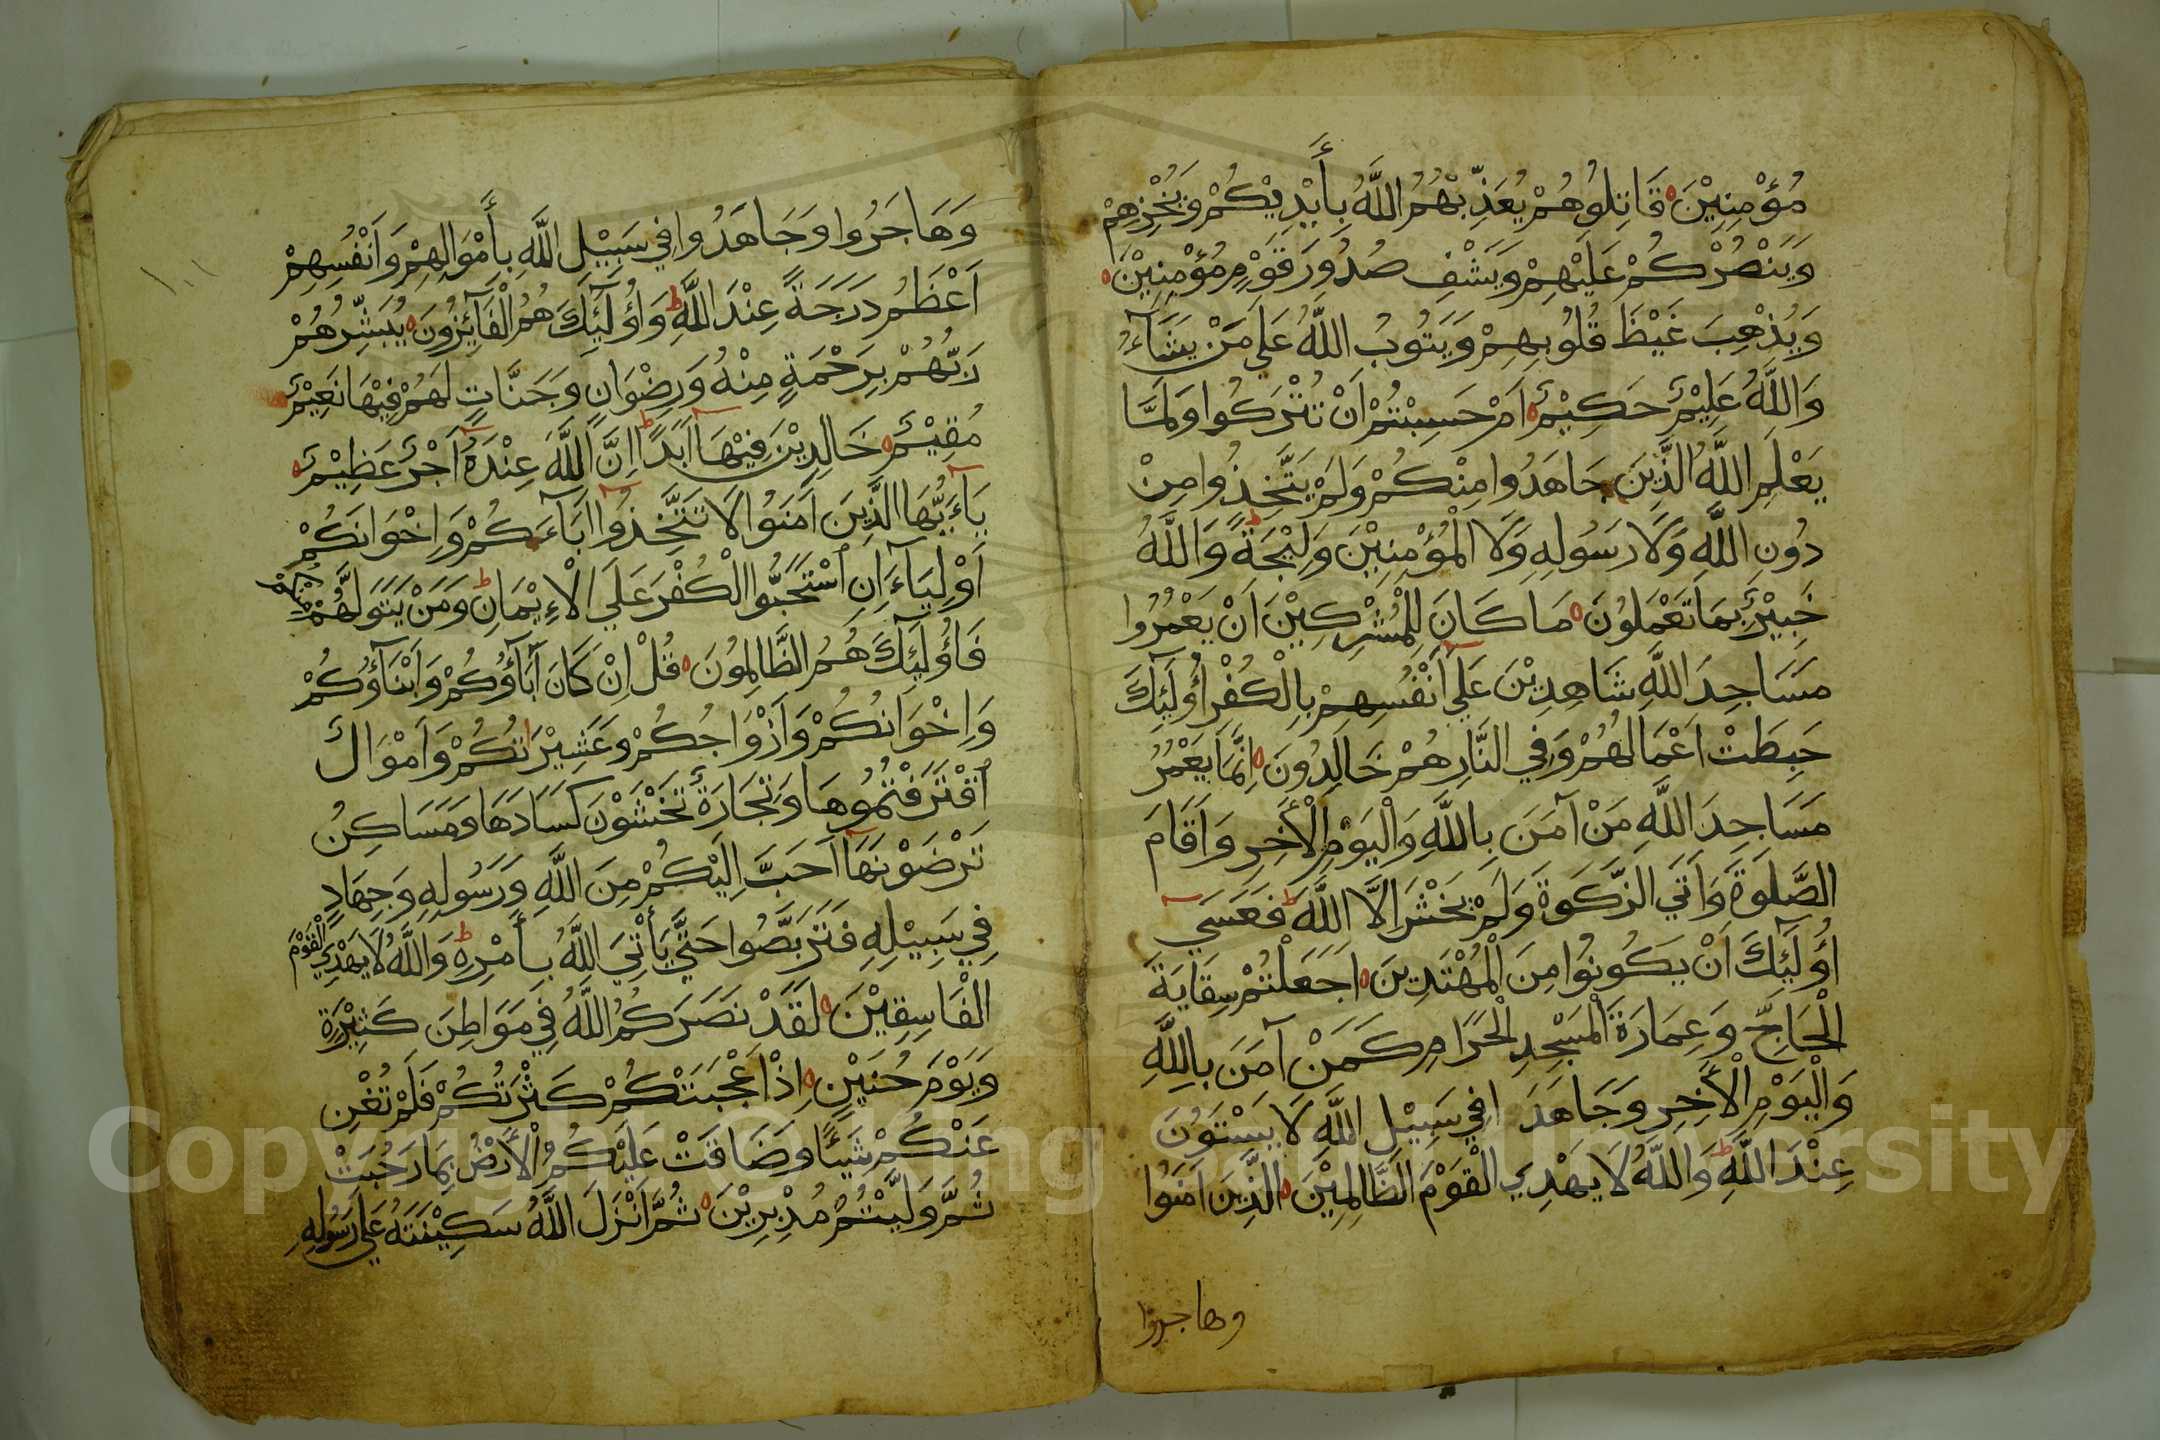 مُؤْمِنِيْنَ ه قَاتِلُوهُمْ يُعَذِّبْهُمُ اللَّهُ بِأَيْدِيْكُمْ وَيُخْزِهِمْ
وَيَنْصُرْكُمْ عَلَيْهِمْ وَيَشْفِ صُدُورَ قَوْمٍ مُؤْمِنِيْنَ ه
وَيُذْهِبَ غَيْظَ قُلُوبِهِمْ وَيَتُوبُ اللَّهُ عَلَي مَنْ يَشَآءُ
وَاللَّهُ عَلِيْمٌ حَكِيْمٌ ه اَمْ حَسِبْتُمْ اَنْ تُتْرَكُوا وَلَمَّا
يَعْلَمِ اللَّهُ الَّذِينَ جَاهَدُوا مِنْكُمْ وَلَمْ يَتَّخِذُوا مِنْ
دُونِ اللَّهِ وَلَا رَسُولِهِ وَلَا الْمُؤْمِنِيْنَ وَلِيْجَةً ط وَاللَّهُ
خَبِيْرٌ بِمَا تَعْمَلُونَ ه مَا كَانَ لِلْمُشْرِكِيْنَ اَنْ يَعْمُرُوا
مَسَاجِدَ اللَّهِ شَاهِدِيْنَ عَلَي اَنْفُسِهِمْ بِالْكُفْرِ اُولَئِكَ
حَبِطَتْ اَعْمَالُهُمْ وَفِي النَّارِ هُمْ خَالِدُونَ ه اِنَّمَا يَعْمُرُ
مَسَاجِدَ اللَّهِ مَنْ آمَنَ بِاللَّهِ وَالْيَوْمِ الْأَخِرِ وَاَقَامَ
الصَّلَوةَ وَآتَي الزَّكَوةَ وَلَمْ يَخْشَ اِلَّا اللَّهَ ط فَعَسَي
اُولَئِكَ اَنْ يَكُونُوا مِنَ الْمُهْتَدِينَ ه اَجَعَلْتُمْ سِقَايَةَ
الْحَاجِّ وَعِمَارَةَ الْمَسْجِدِ الْحَرَامِ كَمَنْ آمَنَ بِاللَّهِ
وَالْيَوْمِ الْأَخِرِ وَجَاهَدَ فِي سَبِيْلِ اللَّهِ لَا يَسْتَوُنَ
عِنْدَ اللَّهِ ط وَاللَّهُ لَا يَهْدِي الْقَوْمَ الظَّالِمِيْنَ ه الَّذِينَ اَمَنُوا
وهاجروا
وَهَاجَرُوا وَجَاهَدُوا فِي سَبِيْلِ اللَّهِ بِأَمْوَالِهِمْ وَاَنْفُسِهِمْ
اَعْظَمُ دَرَجَةً عِنْدَ اللَّهِ ط وَاُولَئِكَ هُمُ الْفَآئِزُونَ ه يُبَشِّرُهُمْ
رَبُّهُمْ بِرَحْمَةٍ مِنْهُ وَرِضْوَانٍ وَجَنَّاتٍ لَهُمْ فِيْهَا نَعِيْمٌ
مُقِيْمٌ ه خَالِدِيْنَ فِيْهَا اَبَدًا ط اِنَّ اللَّهَ عِنْدَهُ اَجْرٌ عَظِيْمٌ ه
يَآءَيُّهَا الَّذِينَ اَمَنُوا لَا تَتَّخِذُوا آبَآءَكُمْ وَاِخْوَانَكُمْ
اَوْلِيَآءَ اِنِ اسْتَحَبُّوا الْكُفْرَ عَلَي الْاِيْمَانِ ط وَمَنْ يَتَوَلَّهُمْ مِنْكُمْ
فَاُولَئِكَ هُمُ الظَّالِمُونَ ه قُلْ اِنْ كَانَ آبَآؤُكُمْ وَاَبْنَآؤُكُمْ
وَاِخْوَانُكُمْ وَاَزْوَاجُكُمْ وَعَشِيْرَاتُكُمْ وَاَمْوَالٌ
اقْتَرَفْتُمُوهَا وَتِجَارَةٌ تَخْشَوْنَ كَسَادَهَا وَمَسَاكِنُ
تَرْضَوْنَهَا اَحَبَّ اِلَيْكُمْ مِنَ اللَّهِ وَرَسُولِهِ وَجِهَادٍ
فِي سَبِيْلِهِ فَتَرَبَّصُوا حَتَّي يَأْتِيَ اللَّهُ بِأَمْرِهِ ط وَاللَّهُ لَا يَهْدِي الْقَوْمَ
الْفَاسِقِيْنَ ه لَقَدْ نَصَرَكُمُ اللَّهُ فِي مَوَاطِنَ كَثِيْرَةٍ
وَيَوْمَ حُنَيْنٍ ه اِذْ اَعْجَبَتْكُمْ كَثْرَتُكُمْ فَلَمْ تُغْنِ
عَنْكُمْ شَيْئًا وَضَاقَتْ عَلَيْكُمُ الْاَرْضُ بِمَا رَحُبَتْ
ثُمَّ وَلَّيْتُمْ مُدْبِرِيْنَ ه ثُمَّ اَنْزَلَ اللَّهُ سَكِيْنَتَهُ عَلَي رَسُولِهِ
Copyright © King Saud University